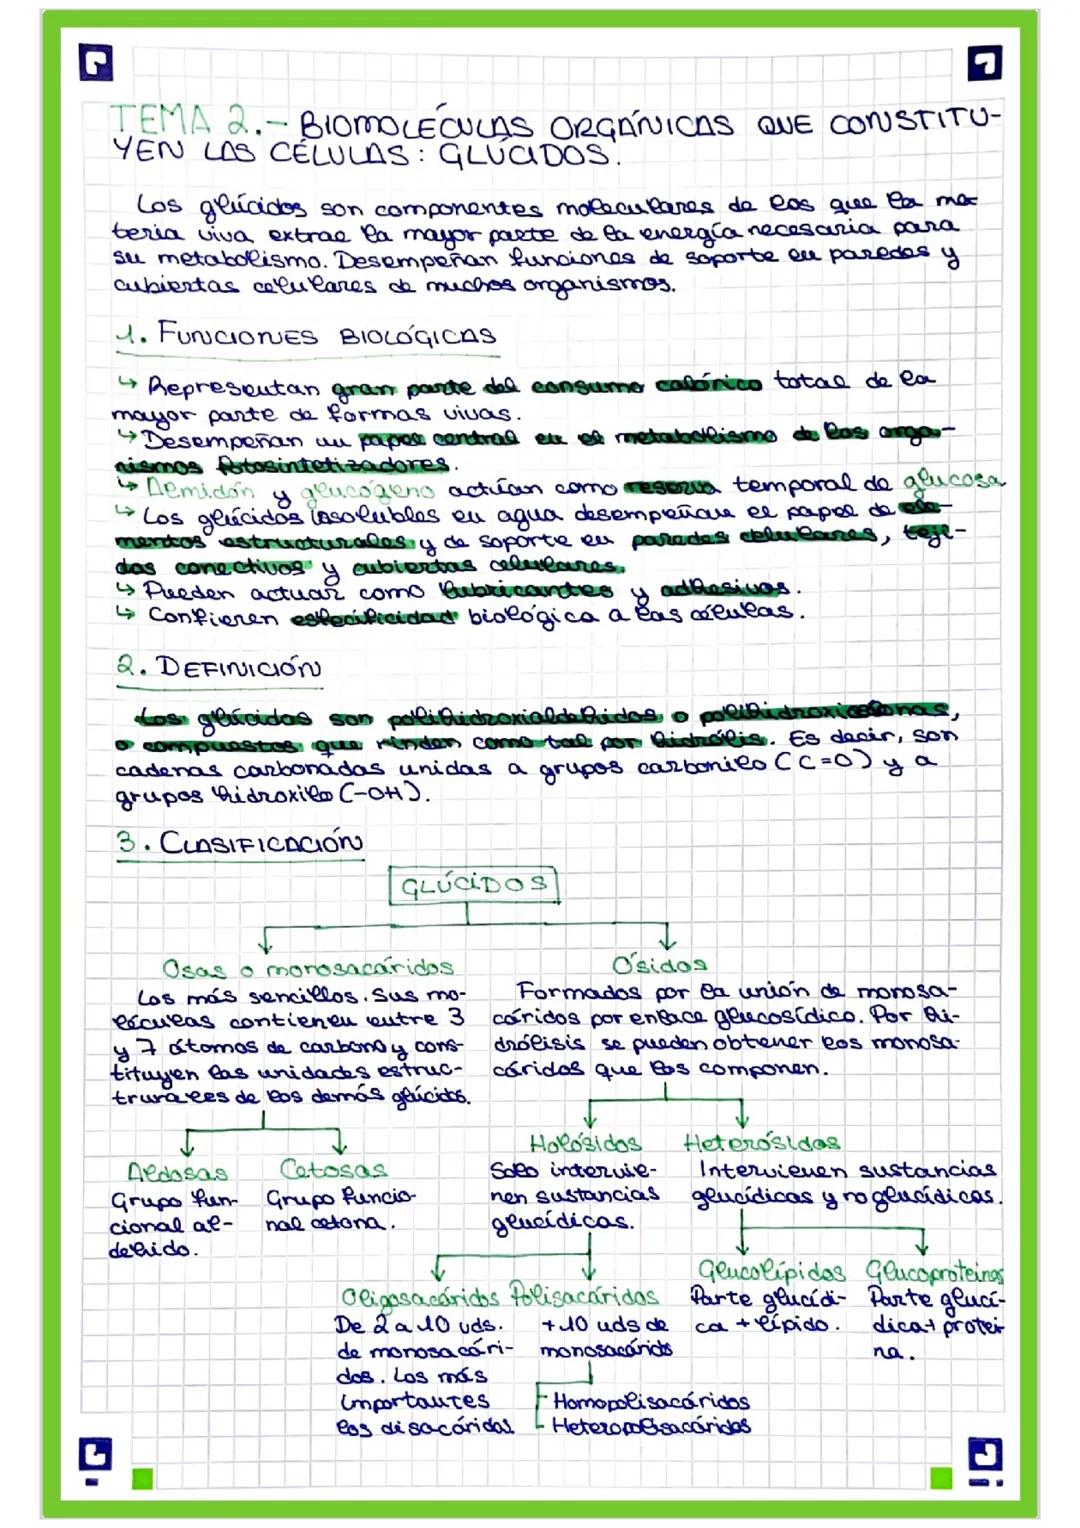 TEMA 2.- BIOMOLÉCULAS ORGÁNICAS QUE CONSTITU-
YEN LAS CÉLULAS: GLÚCIDOS.
Los glúcidos son componentes moleculares de los que la ma-
teria viva extrae la mayor parte de la energía necesaria para
su metabolismo. Desempeñan funciones de soporte en paredes y
cubiertas celulares de muchos organismos.
1. FUNCIONES BIOLÓGICAS
↳ Representan gran parte del consumo calórico total de la
mayor parte de formas vivas.
↳ Desempeñan un papel central en el metabolismo de los orga-
nismos fotosintetizadores.
↳ Almidón y glucógeno actúan como reserva temporal de glucosa
↳ Los glúcidos insolubles en agua desempeñan el papel de ele-
mentos estructurales y de soporte en paredes celulares, teji-
dos conectivos y cubiertas celulares.
↳ Pueden actuar como lubricantes y adhesivos.
↳ Confieren especificidad biológica a las células.
2. DEFINICIÓN
Los glúcidos son polihidroxialdehidos o polihidroxicetonas,
o compuestos que rinden como tal por hidrólis. Es decir, son
cadenas carbonadas unidas a grupos carbonilo (C=O) y a
grupos hidroxilo (-OH).
3. CLASIFICACIÓN
GLÚCIDOS
Osas o monosacáridos
Los más sencillos. Sus mo-
léculas contienen entre 3
y 7 átomos de carbono y cons-
tituyen las unidades estruc-
trurales de los demás glúcidos.
Ósidos
Formados por la unión de monosa-
cáridos por enlace glucosídico. Por hi-
drólisis se pueden obtener los monosa-
cáridos que los componen.
Aldosas
Grupo fun-
cional al-
dehido.
Cetosas
Grupo funcio-
nal cetona.
Holósidos
Solo intervie-
nen sustancias
glucídicas.
Heterósidos
Intervienen sustancias
glucídicas y no glucídicas.
Oligosacáridos
De 2 a 10 uds.
de monosacári-
dos. Los más
importantes
los disacáridos.
Polisacáridos
+10 uds de
monosacárids
Homopolisacáridos
Heteropolisacáridos
Glucolípidos
Parte glucídi-
ca + lípido.
Glucoproteinas
Parte glucí-
dica + protei
na.